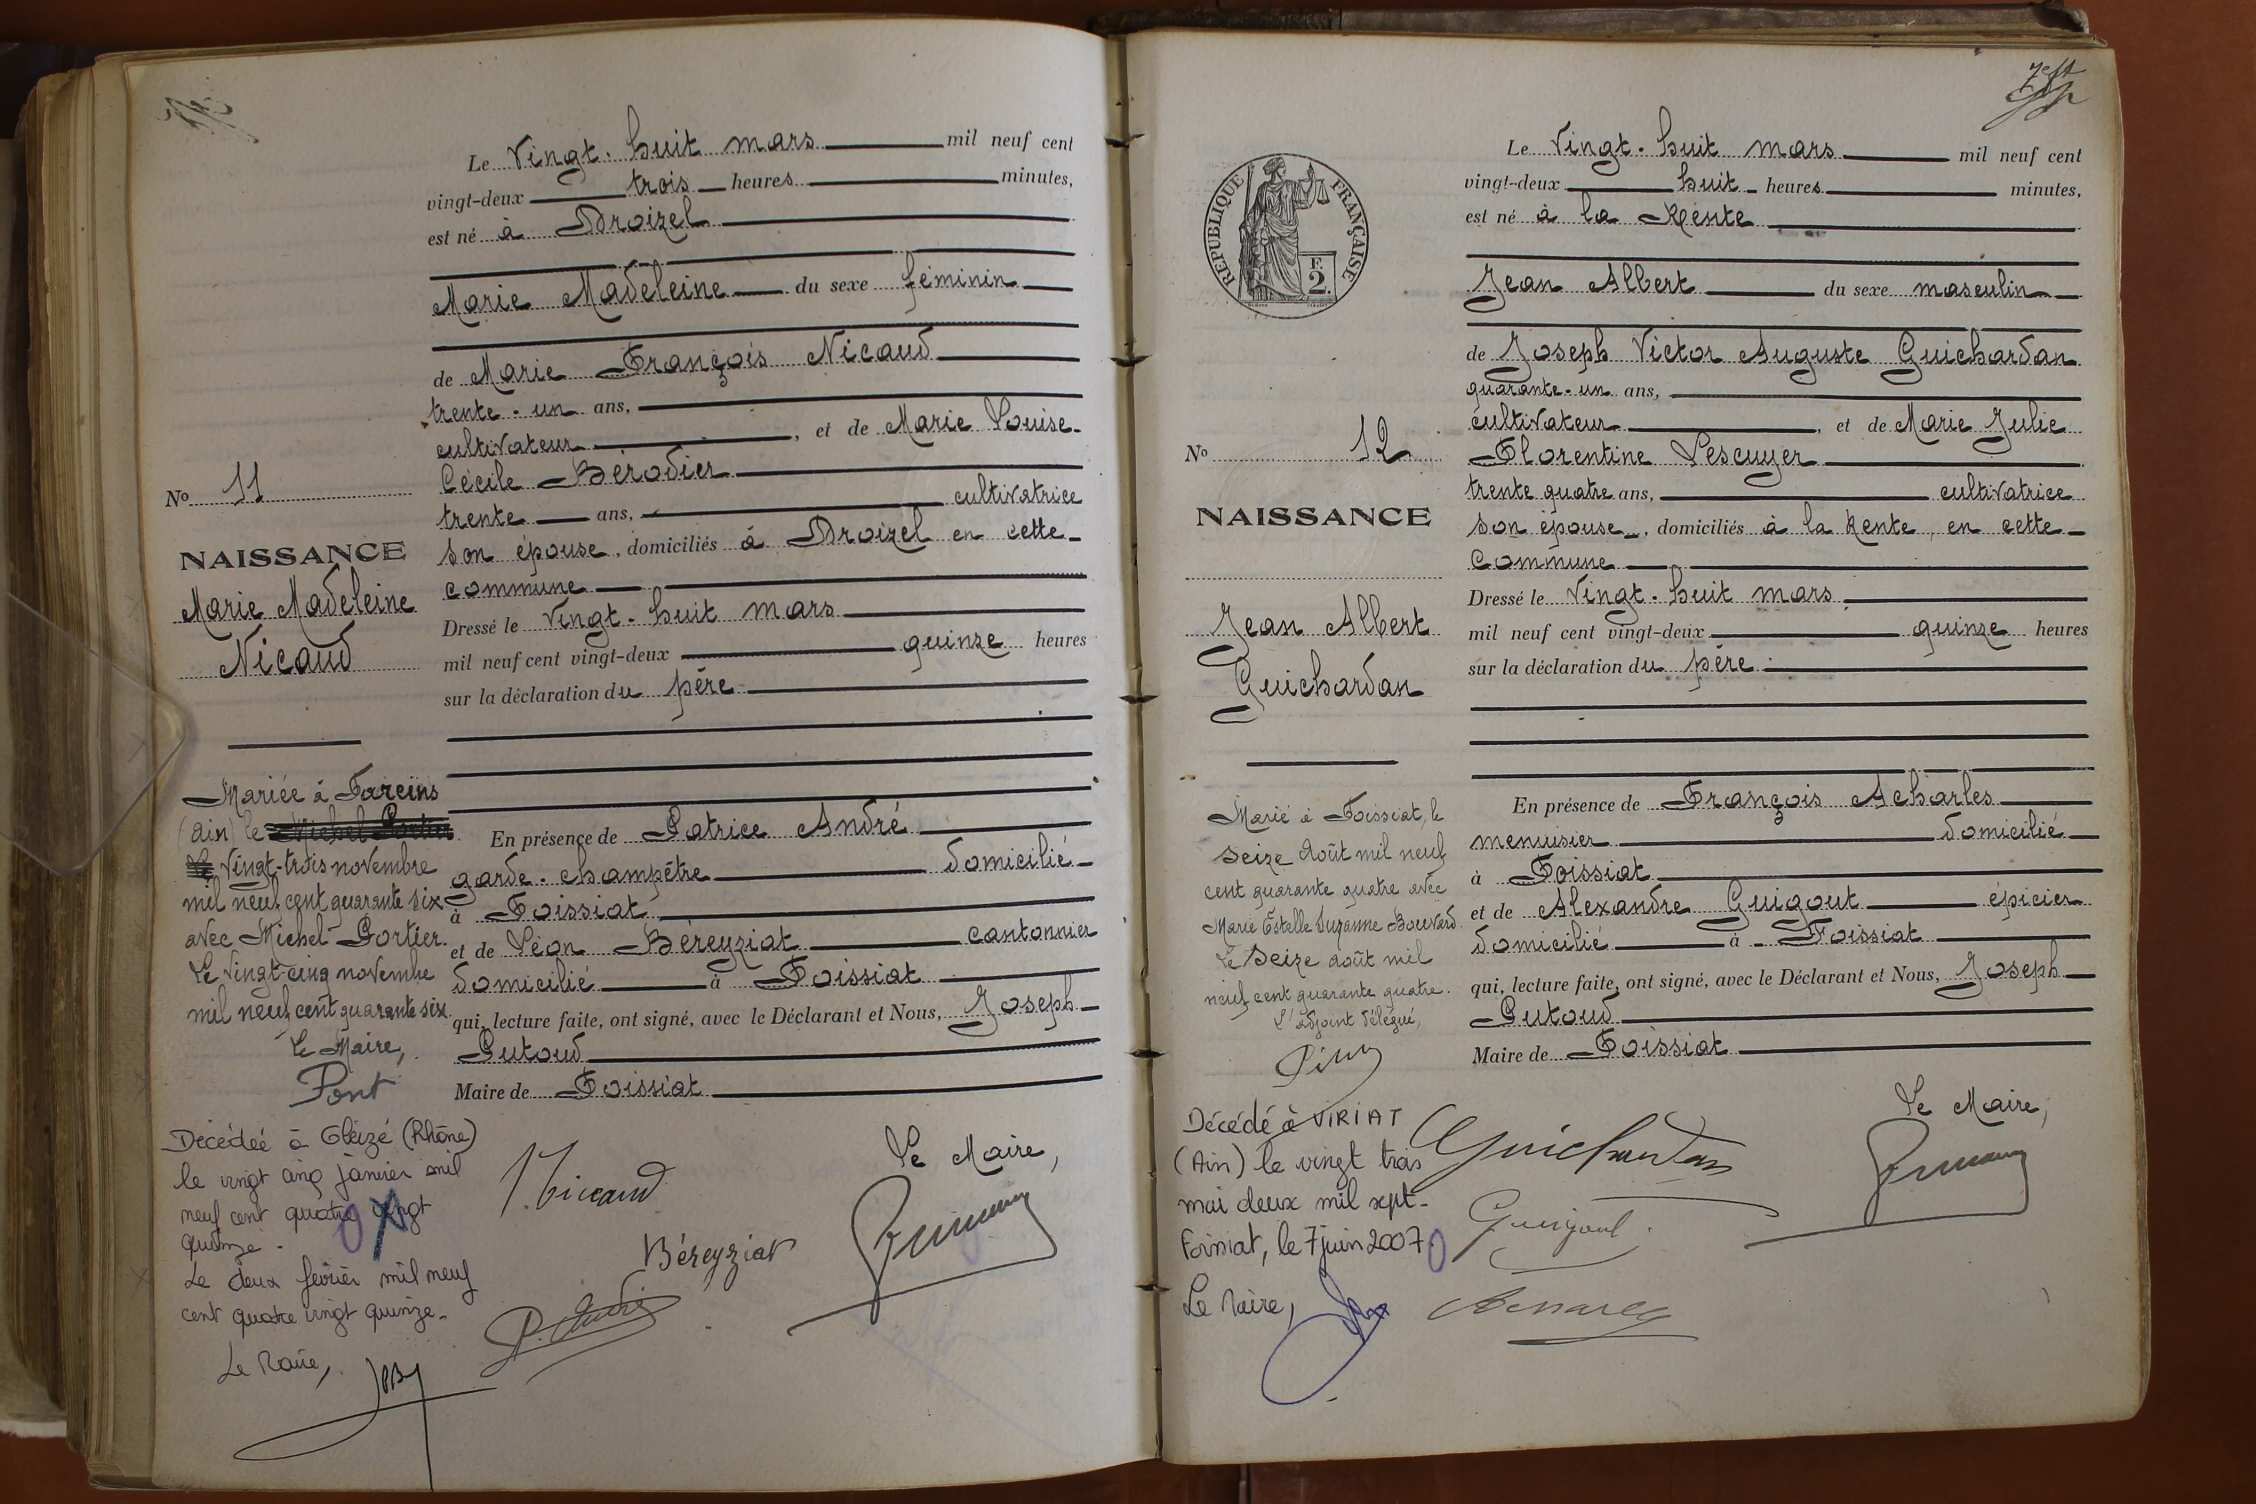 Le Vingt-huit mars mil neuf cent
vingt-deux trois heures minutes,
est né à Broizel
Marie Madeleine du sexe féminin
de Marie François Nicaud
trente-un ans,
cultivateur, et de Marie Louise
Cécile Bérodier
trente ans, cultivatrice
son épouse, domiciliés à Broizel en cette
commune
Dressé le Vingt-huit mars
mil neuf cent vingt-deux quinze heures
sur la déclaration du père
En présence de Patrice André
garde-champêtre domicilié
à Foissiat
et de Léon Béreyziat cantonnier
domicilié à Foissiat
qui, lecture faite, ont signé, avec le Déclarant et Nous, Joseph
Putoud
Maire de Foissiat
Le Maire,
Béreyziat
No 11
NAISSANCE
Marie Madeleine
Nicaud
Mariée à Fareins
(Ain) le Michel Portier
Le Vingt-trois novembre
mil neuf cent quarante six
avec Michel Portier.
Le Vingt-cinq novembre
mil neuf cent quarante six
Le Maire,
Pont
Décédée à Gleizé (Rhône)
le vingt cinq janvier mil
neuf cent quatre vingt
quinze.
Le deux février mil neuf
cent quatre vingt quinze.
Le Maire,
Le Vingt-huit mars mil neuf cent
vingt-deux huit heures minutes,
est né à la Kente
Jean Albert du sexe masculin
de Joseph Victor Auguste Guichardan
quarante-un ans,
cultivateur, et de Marie Julie
Florentine Lescuyer
trente quatre ans, cultivatrice
son épouse, domiciliés à la Kente, en cette
commune
Dressé le Vingt-huit mars
mil neuf cent vingt-deux quinze heures
sur la déclaration du père
En présence de François Acharles
menuisier domicilié
à Foissiat
et de Alexandre Guigout épicier
domicilié à Foissiat
qui, lecture faite, ont signé, avec le Déclarant et Nous, Joseph
Putoud
Maire de Foissiat
Le Maire,
Guichardan
RÉPUBLIQUE FRANÇAISE
F.
2
No 12
NAISSANCE
Jean Albert
Guichardan
Marié à Foissiat, le
Seize Août mil neuf
cent quarante quatre avec
Marie Estelle Suzanne Bouvard.
Le Seize Août mil
neuf cent quarante quatre.
L'adjoint délégué,
Décédé à VIRIAT
(Ain) le vingt trois
mai deux mil sept.
Foissiat, le 7 juin 2007
Le Maire,